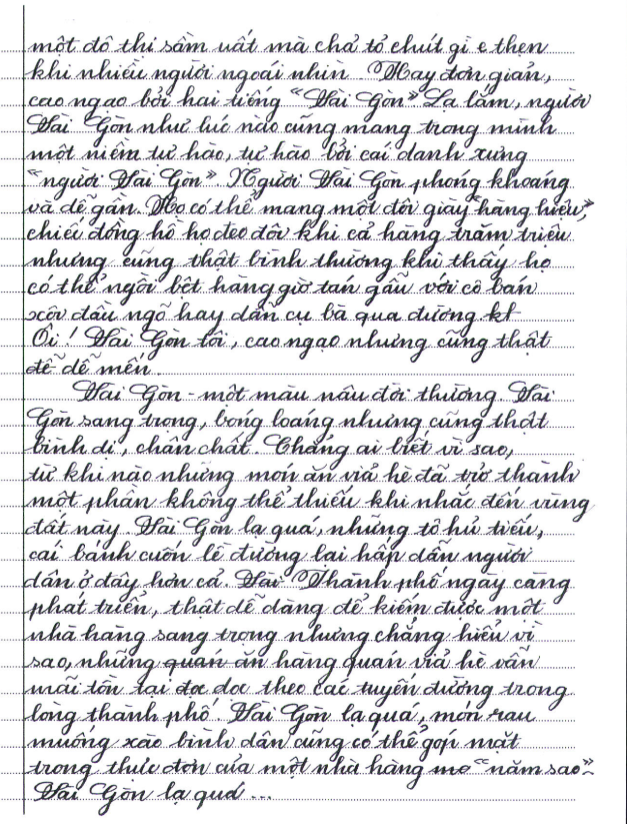 một đô thị sầm uất mà chả tỏ chút gì e thẹn
khi nhiều người ngoái nhìn. Hay đơn giản,
cao ngạo bởi hai tiếng “Sài Gòn”. Lạ lắm, người
Sài Gòn như lúc nào cũng mang trong mình
một niềm tự hào, tự hào bởi cái danh xưng
“người Sài Gòn”. Người Sài Gòn phóng khoáng
và dễ gần. Họ có thể mang một đôi giày “hàng hiệu”,
chiếc đồng hồ họ đeo đôi khi cả hàng trăm triệu
nhưng cũng thật bình thường khi thấy họ
có thể ngồi bệt hàng giờ tán gẫu với cô bán
xôi đầu ngõ hay dẫn cụ bà qua đường kt
Ôi! Sài Gòn tôi, cao ngạo nhưng cũng thật
dễ dễ mến.
Sài Gòn - một màu nâu đời thường. Sài
Gòn sang trọng, bóng loáng nhưng cũng thật
bình dị, chân chất. Chẳng ai biết vì sao,
từ khi nào những món ăn vỉa hè đã trở thành
một phần không thể thiếu khi nhắc đến vùng
đất này. Sài Gòn lạ quá, những tô hủ tiếu,
cái bánh cuốn lề đường lại hấp dẫn người
dân ở đây hơn cả. Sài Thành phố ngày càng
phát triển, thật dễ dàng để kiếm được một
nhà hàng sang trọng nhưng chẳng hiểu vì
sao, những quán ăn hàng quán vỉa hè vẫn
mãi tồn tại đọc dọc theo các tuyến đường trong
lòng thành phố. Sài Gòn lạ quá, món rau
muống xào bình dân cũng có thể góp mặt
trong thực đơn của một nhà hàng mo “năm sao”.
Sài Gòn lạ quá ...